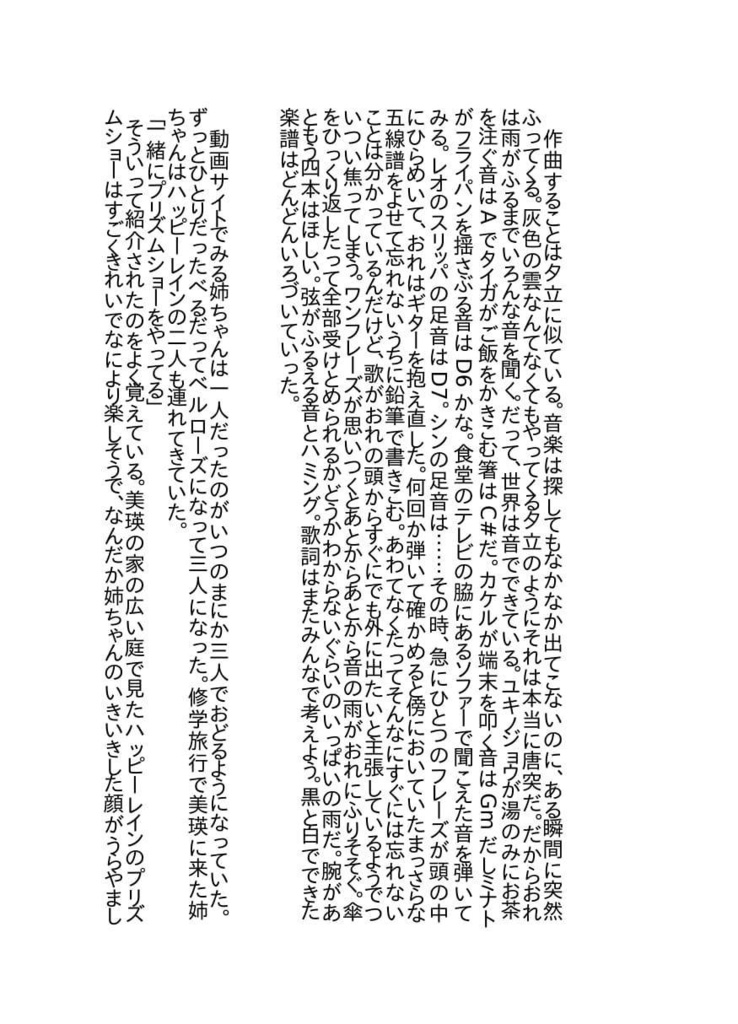 作曲することは夕立に似ている。音楽は探してもなかなか出てこないのに、ある瞬間に突然
ふってくる。灰色の雲なんてなくてもやってくる夕立のようにそれは本当に唐突だ。だからおれ
は雨がふるまでいろんな音を聞く。だって、世界は音でできている。ユキノジョウが湯のみにお茶
を注ぐ音は A でタイガがご飯をかきこむ箸は C# だ。カケルが端末を叩く音は Gm だしミナト
がフライパンを揺さぶる音は D6 かな。食堂のテレビの脇にあるソファーで聞こえた音を弾いて
みる。レオのスリッパの足音は D7。シンの足音は……その時、急にひとつのフレーズが頭の中
にひらめいて、おれはギターを抱え直した。何回か弾いて確かめると傍においていたまっさらな
五線譜をよせて忘れないうちに鉛筆で書きこむ。あわてなくたってそんなにすぐには忘れない
ことは分かっているんだけど、歌がおれの頭からすぐにでも外に出たいと主張しているようでつ
いつい焦ってしまう。ワンフレーズが思いつくとあとからあとから音の雨がおれにふりそそぐ。傘
をひっくり返したって全部受けとめられるかどうかわからないぐらいのいっぱいの雨だ。腕があ
ともう四本はほしい。弦がふるえる音とハミング。歌詞はまたみんなで考えよう。黒と白でできた
楽譜はどんどんいろづいていった。
　動画サイトでみる姉ちゃんは一人だったのがいつのまにか三人でおどるようになっていた。
ずっとひとりだったべるだってベルローズになって三人になった。修学旅行で美瑛に来た姉
ちゃんはハッピーレインの二人も連れてきていた。
「一緒にプリズムショーをやってる」
　そういって紹介されたのをよく覚えている。美瑛の家の広い庭で見たハッピーレインのプリズ
ムショーはすごくきれいでなにより楽しそうで、なんだか姉ちゃんのいきいきした顔がうらやまし